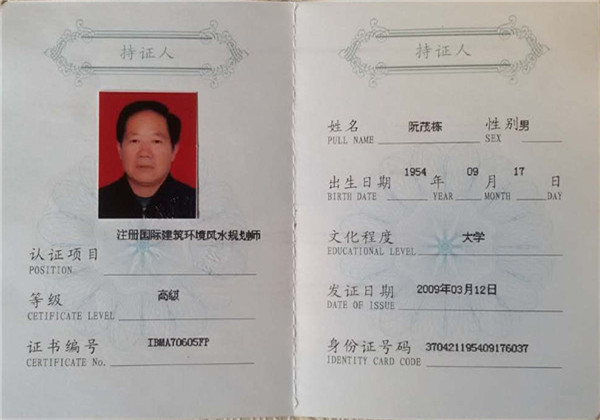 持证人
注册国际建筑环境风水规划师
认证项目
POSITION
等级 高级
CETIFICATE LEVEL
证书编号 IBMA70605FP
CERTIFICATE No.
持证人
姓名 阮茂栋 性别 男
PULL NAME SEX
出生日期 1954 年 09 月 17 日
BIRTH DATE YEAR MONTH DAY
文化程度 大学
EDUCATIONAL LEVEL
发证日期 2009年03月12日
DATE OF ISSUE
身份证号码 370421195409176037
IDENTITY CARD CODE